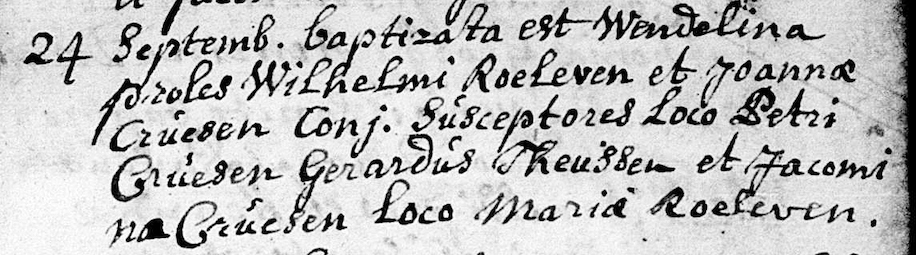 24 Septemb. baptizata est Wendelina
proles Wilhelmi Roeleven et Joannæ
Crüesen Conj. Süsceptores loco Petri
Crüesen Gerardüs Theussen et Jacomi
na Crüesen loco Mariæ Roeleven.